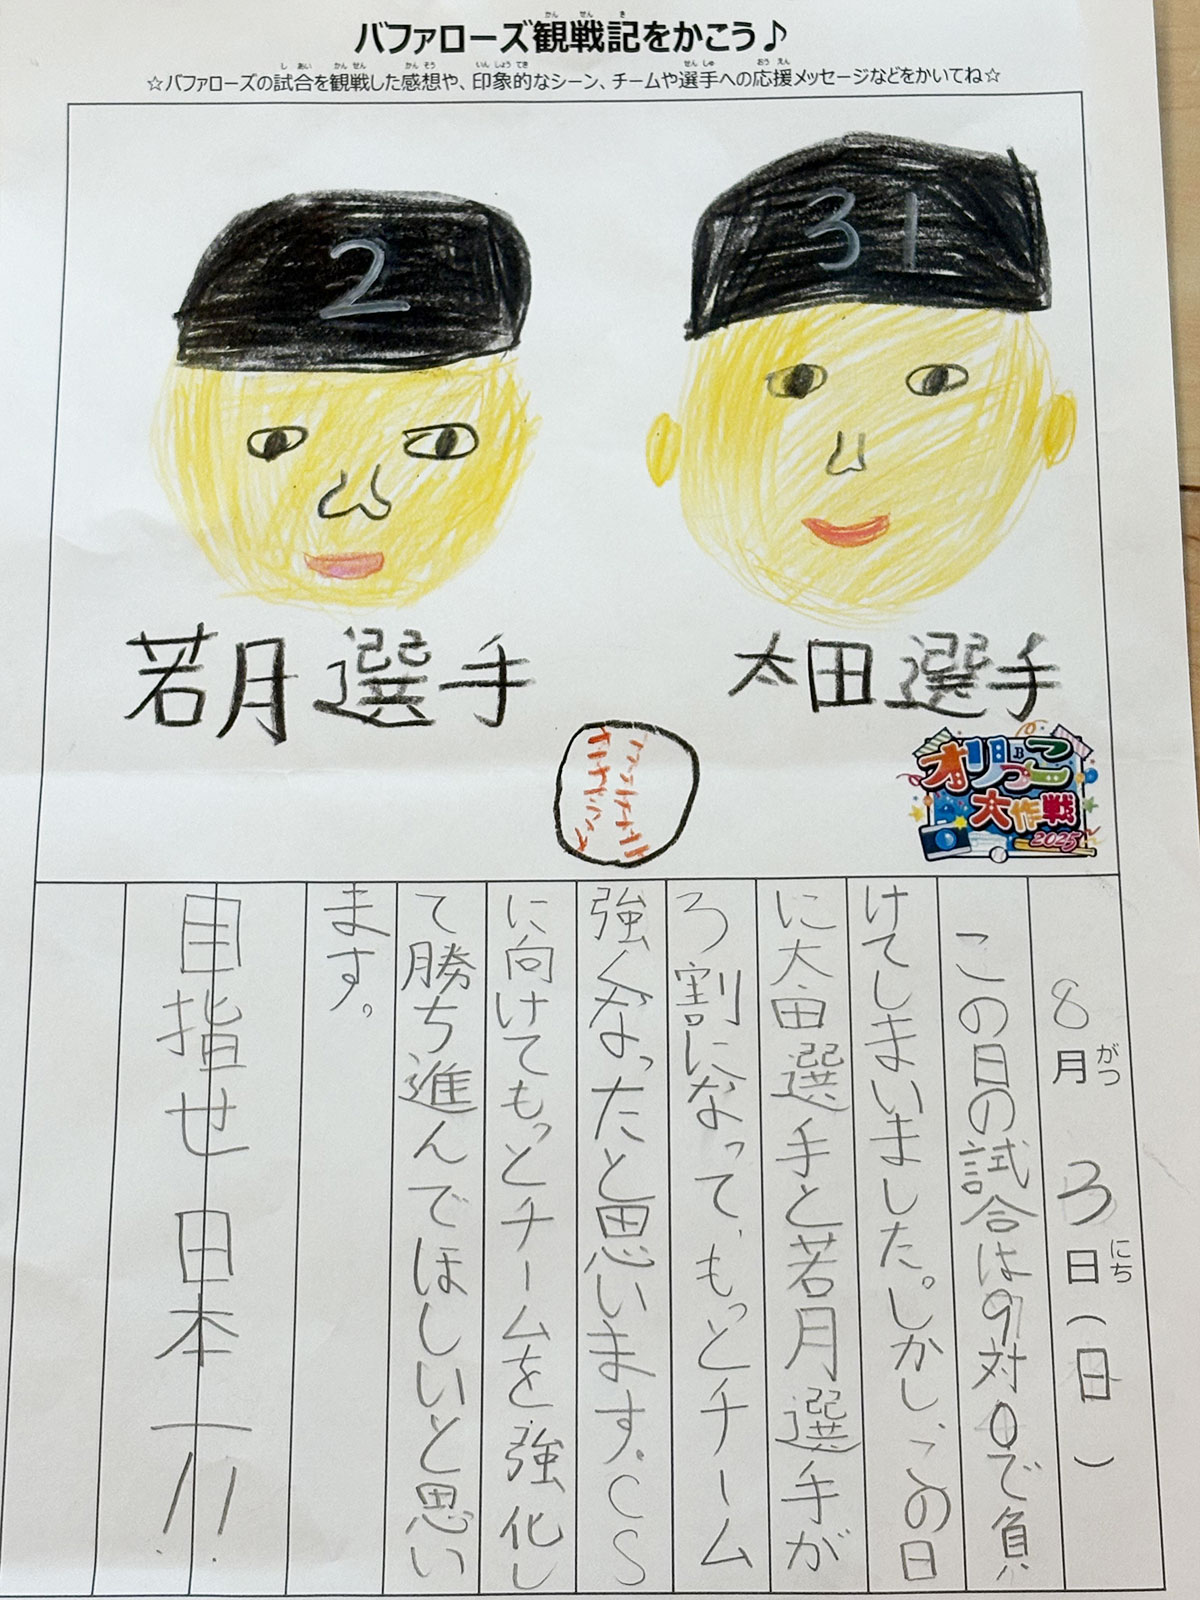 バファローズ観戦記をかこう♪
☆バファローズの試合を観戦した感想や、印象的なシーン、チームや選手への応援メッセージなどをかいてね☆
2
31
若月選手
太田選手
オリっこ
大作戦
2025
8月3日(日)
この日の試合は9対0で負
けてしまいました。しかし、この日
に太田選手と若月選手が
3割になって、もっとチーム
強くなったと思います。CS
に向けてもっとチームを強化し
て勝ち進んでほしいと思い
ます。
目指せ日本一!!